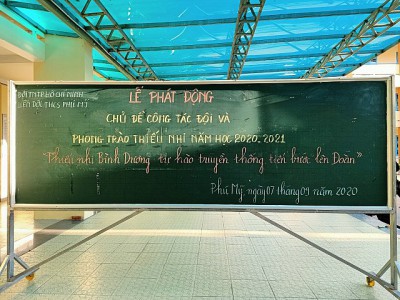 ĐỘI TNTP HỒ CHÍ MINH
LIÊN ĐỘI THCS PHÚ MỸ
LỄ PHÁT ĐỘNG
CHỦ ĐỀ CÔNG TÁC ĐỘI VÀ
PHONG TRÀO THIẾU NHI NĂM HỌC 2020-2021
"Thiếu nhi Bình Dương tự hào truyền thống tiến bước lên Đoàn"
Phú Mỹ, ngày 07 tháng 09 năm 2020